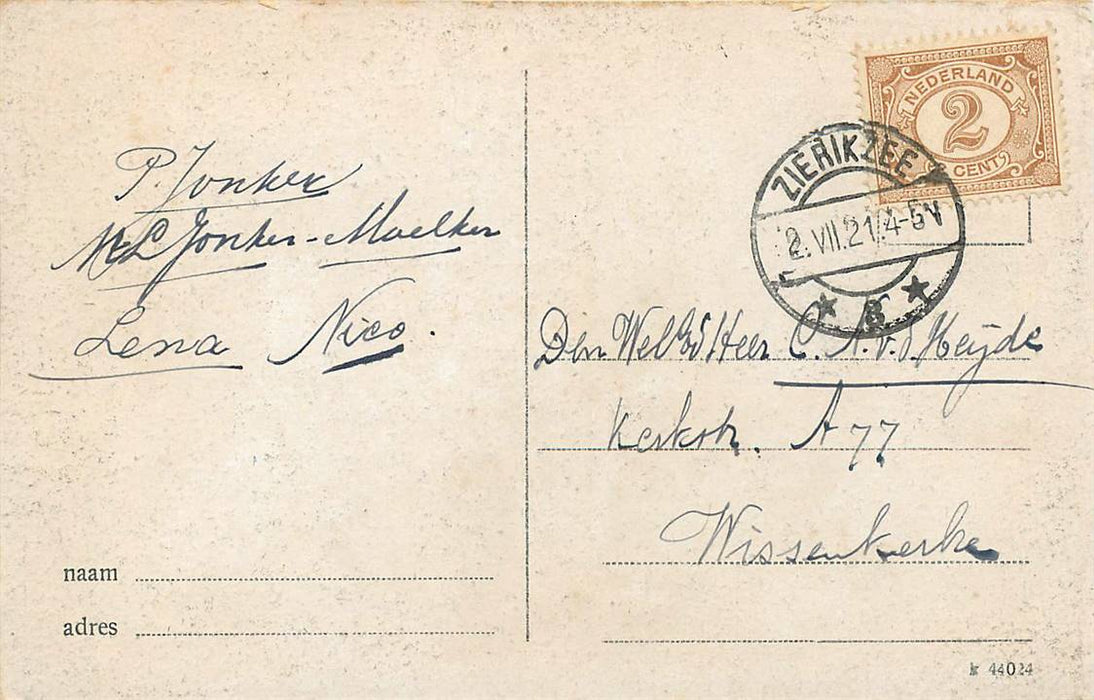 P. Jonker
ML Jonker-Moelker
Lena Nico.
naam
adres
NEDERLAND
2
CENT
ZIERIKZEE
2.VII.21 4-5V
Den WelEd Heer C. A. v. d. Heijde
Kerkstr. A 77
Wissenkerke
k 44024